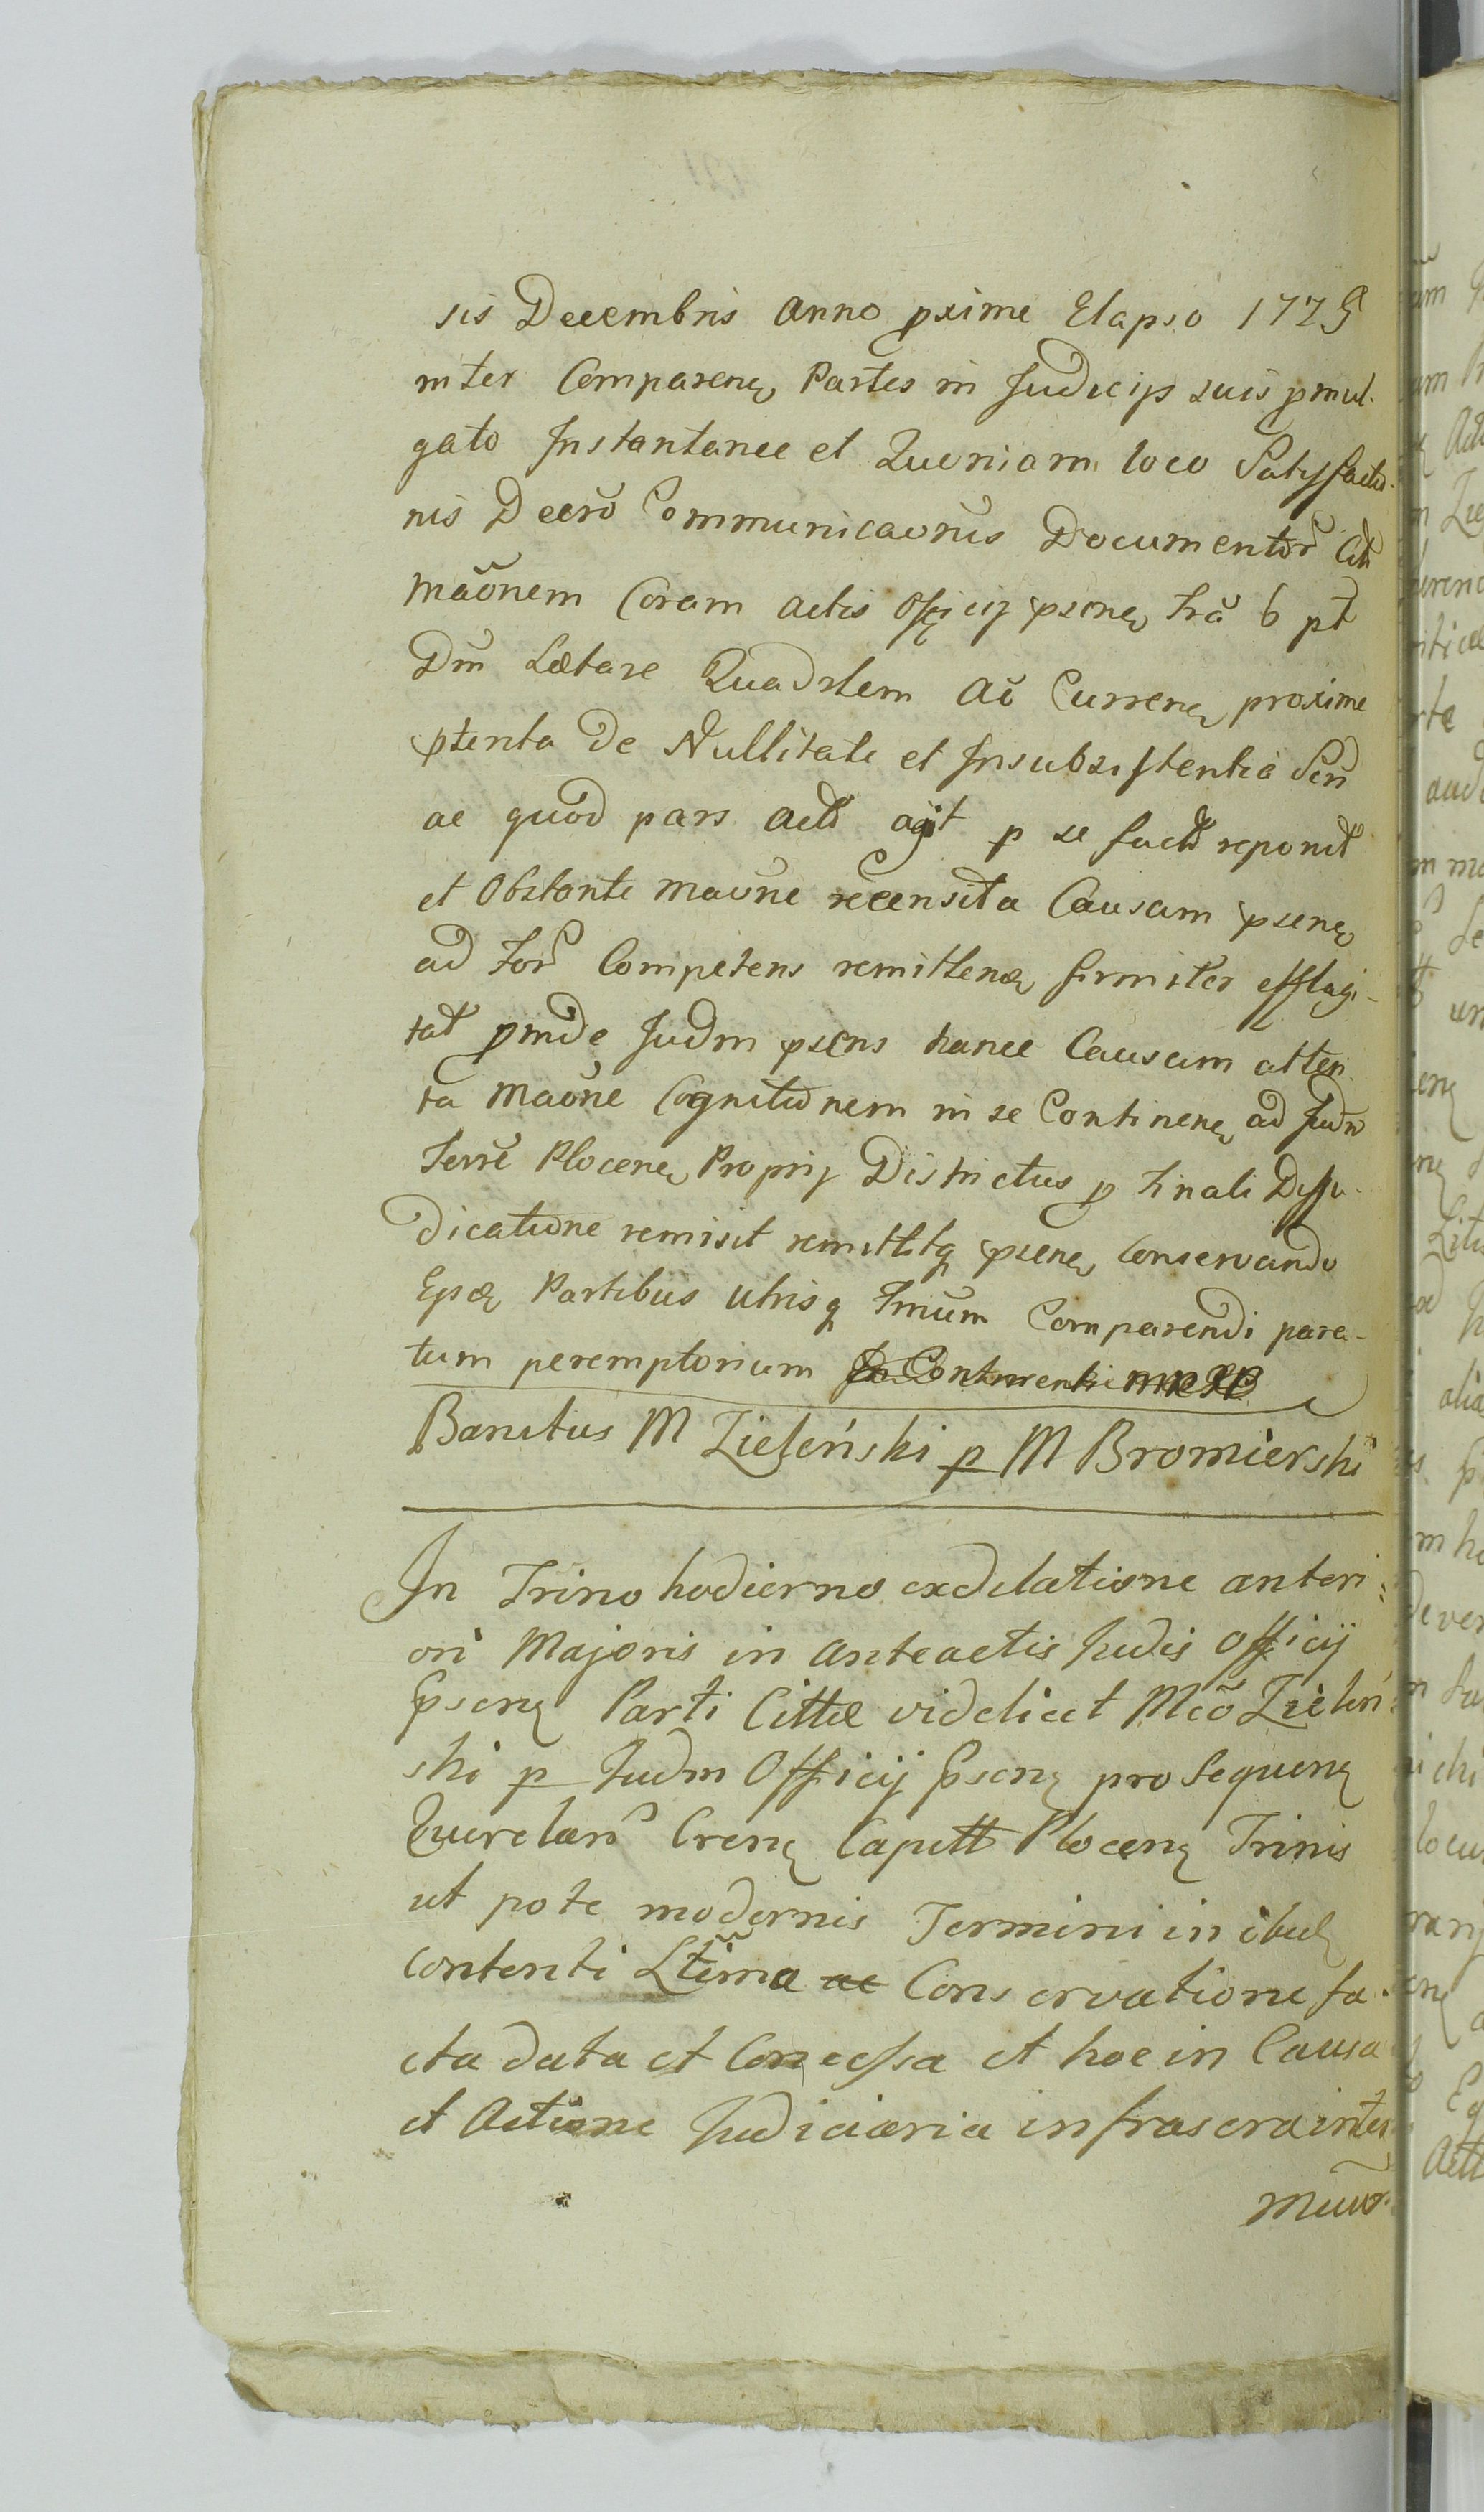 sis Decembris anno pxime Elapso 1725
inter Comparenẽ Partes in Judicijs suis pmul-
gato Instantanee et Quoniam loco Satysfactio-
nis Decrõ Communicaõnis Documentor̃
Maõnem Coram actis Officij psenẽ fr̃a 6 pt̃
Dm̃ Lætare Quadrlem Aõ Currenẽ proxime
ptenta de Nullitate et Insubsistentia
ac quod pars act̃ agit p se fact̃ reponit
et Obstante maõne recensita Causam psenẽ
ad for̃ Competens remittenã firmiter efflagi-
tat̃ pinde Judm psens hancce Causam atten
ta Maõne Cognitionem in se Continenẽ ad Judm
Terrẽ Plocenẽ Proprij Districtus p finali Disju-
dicatione remisit remittitq psenẽ Conservando
Partibus utrisq tm̃um Comparendi para-
tum peremptorium
Banitus M Zieleński p M Bromierski
In Trino hodierno exdilatione anteri:
ori Majoris in anteactis Judis Officij
Psenẽ Parti Cittæ videlicet Mcõ Zieleń:
ski p Judm Officij Psenẽ pro Sequenẽ
Querelam Crenẽ Capitt Plocenẽ Trinis
ut pote modernis Termini in ibid
contenti Ltĩma ac Conservatione fa-
cta data et Concessa et hoc in Causa
et Actione Judiciaria infrascra inter